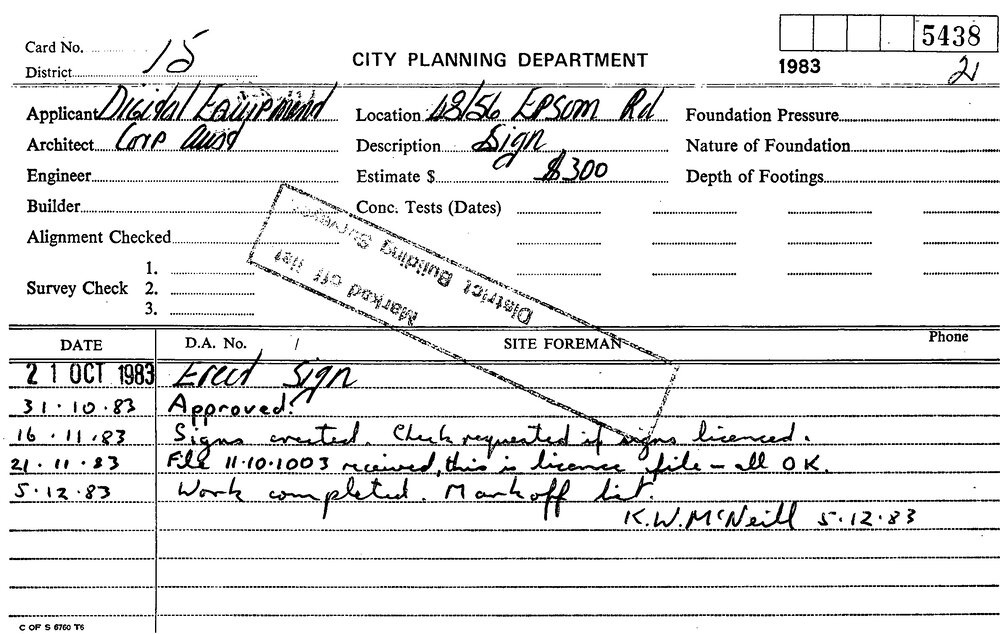 5438
Card No. 15
CITY PLANNING DEPARTMENT
1983 2
District
Applicant Digital Equipment Location 48/56 EPSOM Rd Foundation Pressure
Architect Corp Aust Description Sign Nature of Foundation
Engineer Estimate $ $300 Depth of Footings
Builder Conc. Tests (Dates)
Alignment Checked
1.
Survey Check 2.
3.
District Building Surveyor
Marked off list
DATE D.A. No. / SITE FOREMAN Phone
21 OCT 1983 Erect Sign
31.10.83 Approved.
16.11.83 Signs erected. Check requested if signs licenced.
21.11.83 File 11.10.1003 received, this is licence file - all OK.
5.12.83 Work completed. Mark off list.
K.W. McNeill 5.12.83
C OF S 6760 T6